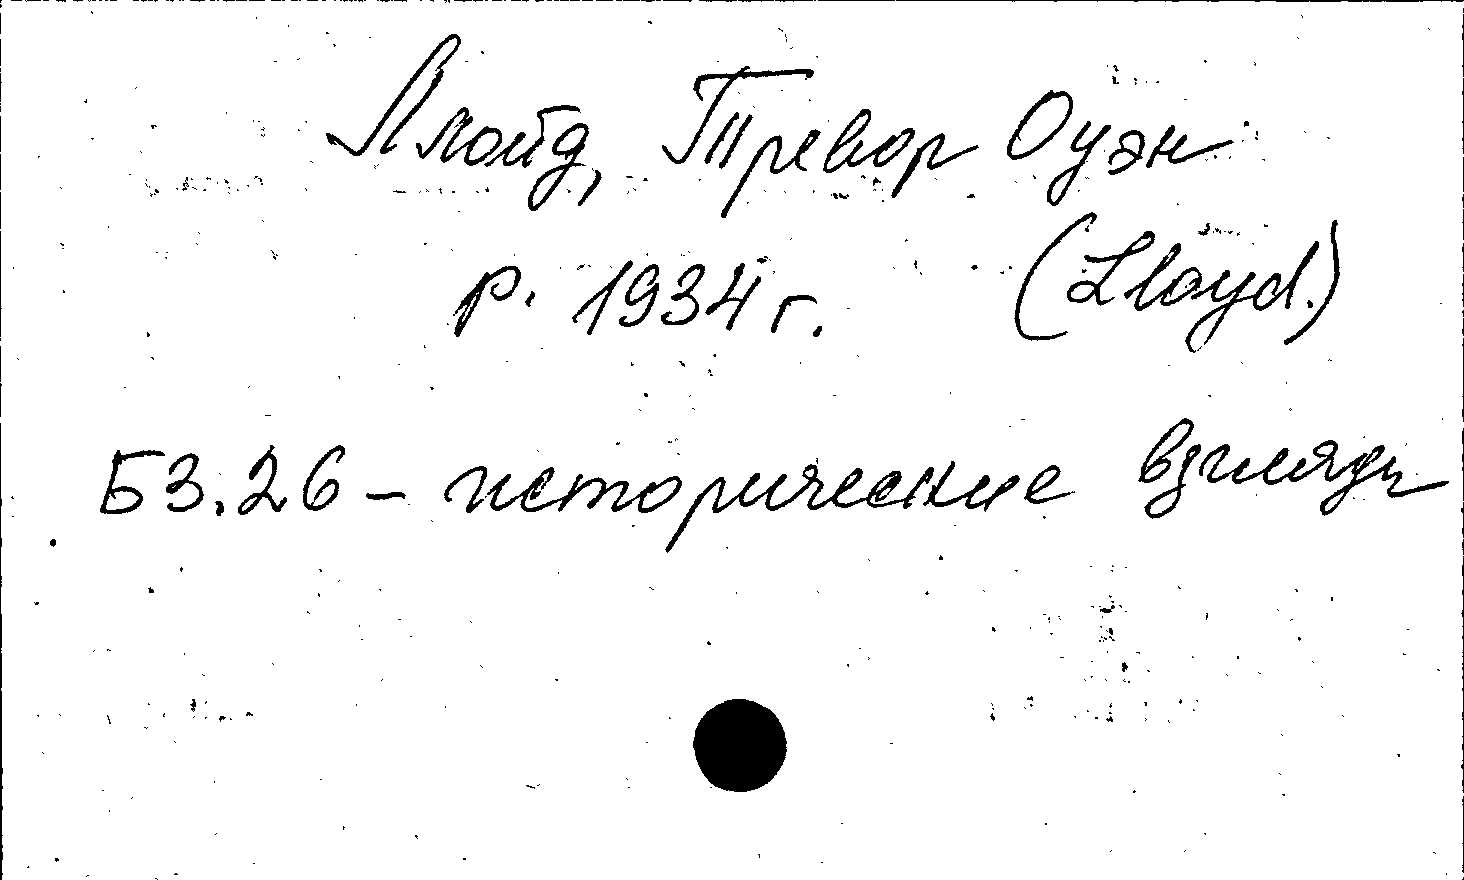 Ллойд, Тревор Оуэн
р. 1934 г. (Lloyd.)
Б3.26 – исторические взгляды